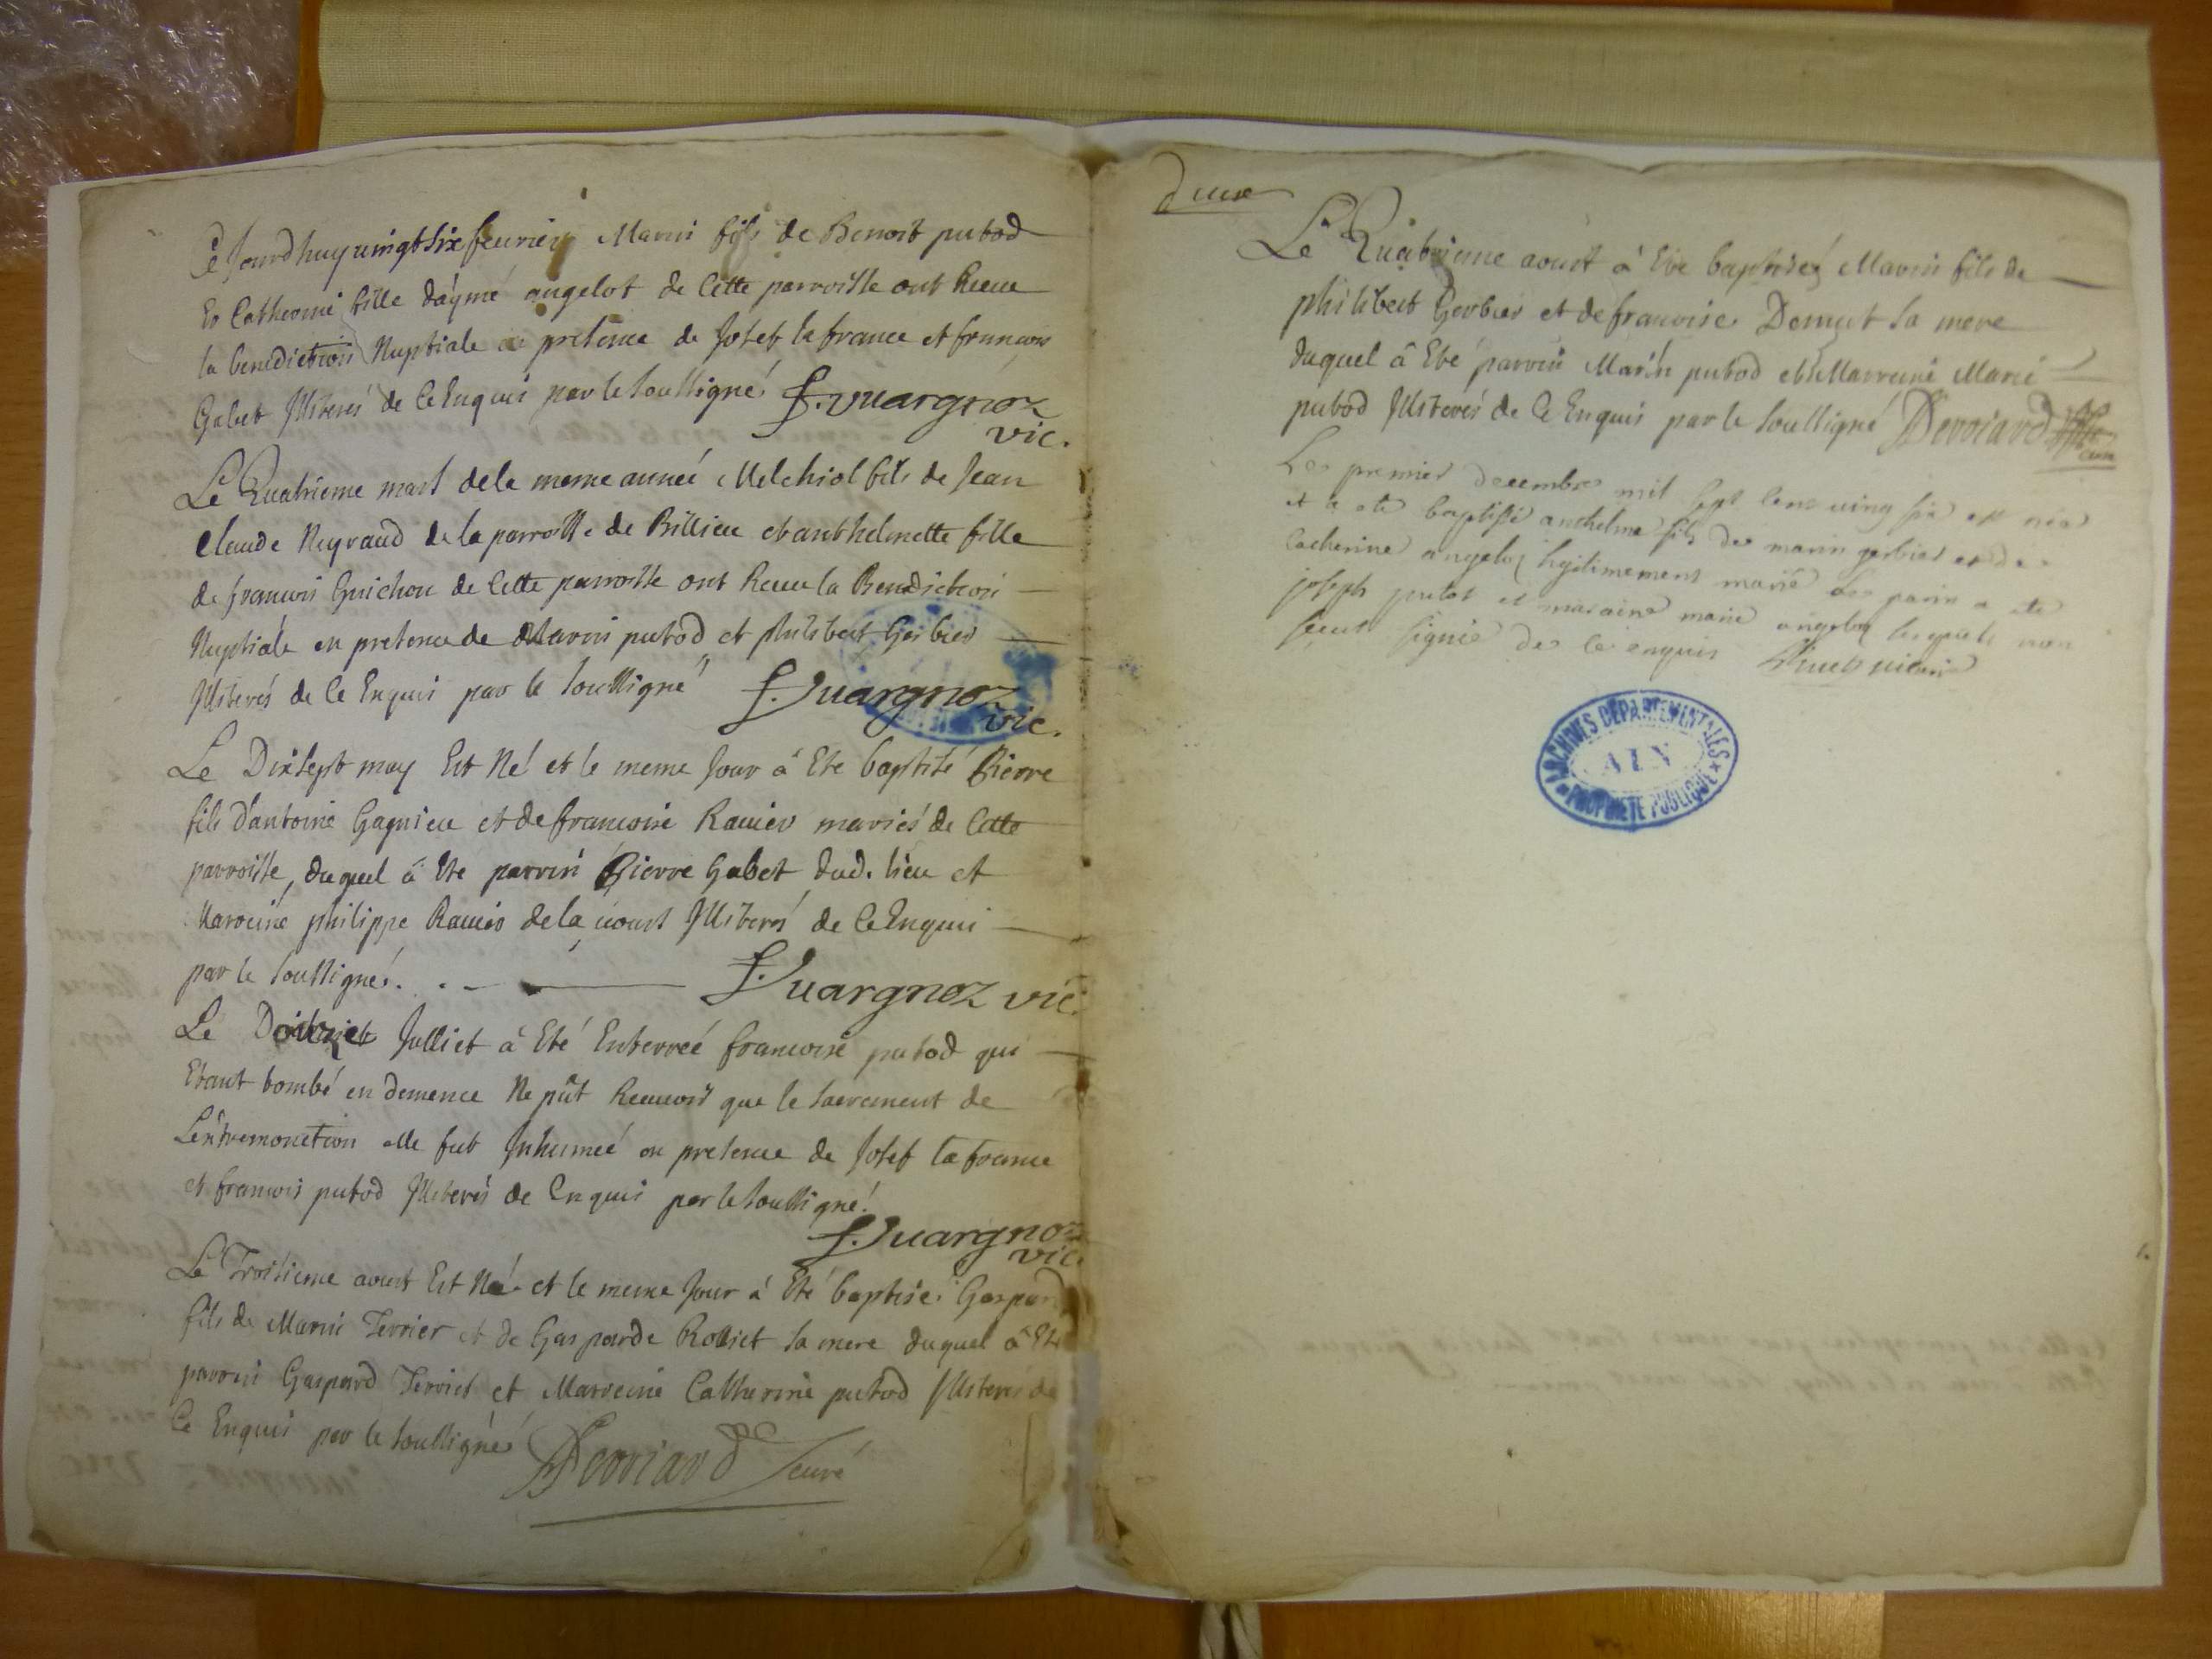 Ce Jourdhuy uingt six feurier Marin fils de Benoit putod
et Catherine fille d'aymé angelot de Cette parroisse ont Receu
la benediction Nuptiale en presence de Josef la france et francois
Gabet Illiterés de Ce Enquis par le Soussigné F. Vuargnoz
vic.
Le Quatrieme mars de la meme année Melchiol fils de Jean
Claude Neyraud de la parroisse de Billieu et anthelmette fille
de francois Guichon de Cette parroisse ont Receu la Benediction
Nuptiale en presence de Marin putod et philibert Gerbier
Illiterés de Ce Enquis par le Soussigné F. Vuargnoz
vic.
Le Dixsept may Est Né et le meme Jour à Eté baptisé Pierre
fils d'antoine Gagnieu et de francoise Ravier mariés de Cette
parroisse, duquel à Eté parrin Pierre Gabet dud. lieu et
Marreine philippe Ravier de la Illiterés de Ce Enquis
par le Soussigné. F. Vuargnoz vic.
Le Julliet à Eté Enterreé francoise putod qui
Etant tombé en demence Ne pût Recevoir que le Sacrement de
L'extremonction elle fut Inhumeé en presence de Josef la france
et francois putod Illiterés de Enquis par le Soussigné.
F. Vuargnoz
vic.
Le Troisieme aoust Est Né et le meme Jour à Eté baptisé Gaspard
fils de Marin Terrier et de Gasparde Rolliet sa mere duquel à Eté
parrin Gaspard Terrier et Marreine Catherine putod Illiterés de
Ce Enquis par le Soussigné Derriard curé
Le Quatrieme aoust à Eté baptisé Marin fils de
philibert Gerbier et de francoise sa mere
duquel à Eté parrin Marin putod et Marreine Marie
putod Illiterés de Ce Enquis par le Soussigné Derriard
Le premier decembre mil sept cens uing six est née
et a eté baptissé anthelme fils de marin gerbier et de
Catherine angelot legitimement marié le parin a eté
joseph putot et maraine marie angelot lesquels non
sceut signié de ce enquis vicaire
ARCHIVES DÉPARTEMENTALES
AIN
PROPRIÉTÉ PUBLIQUE